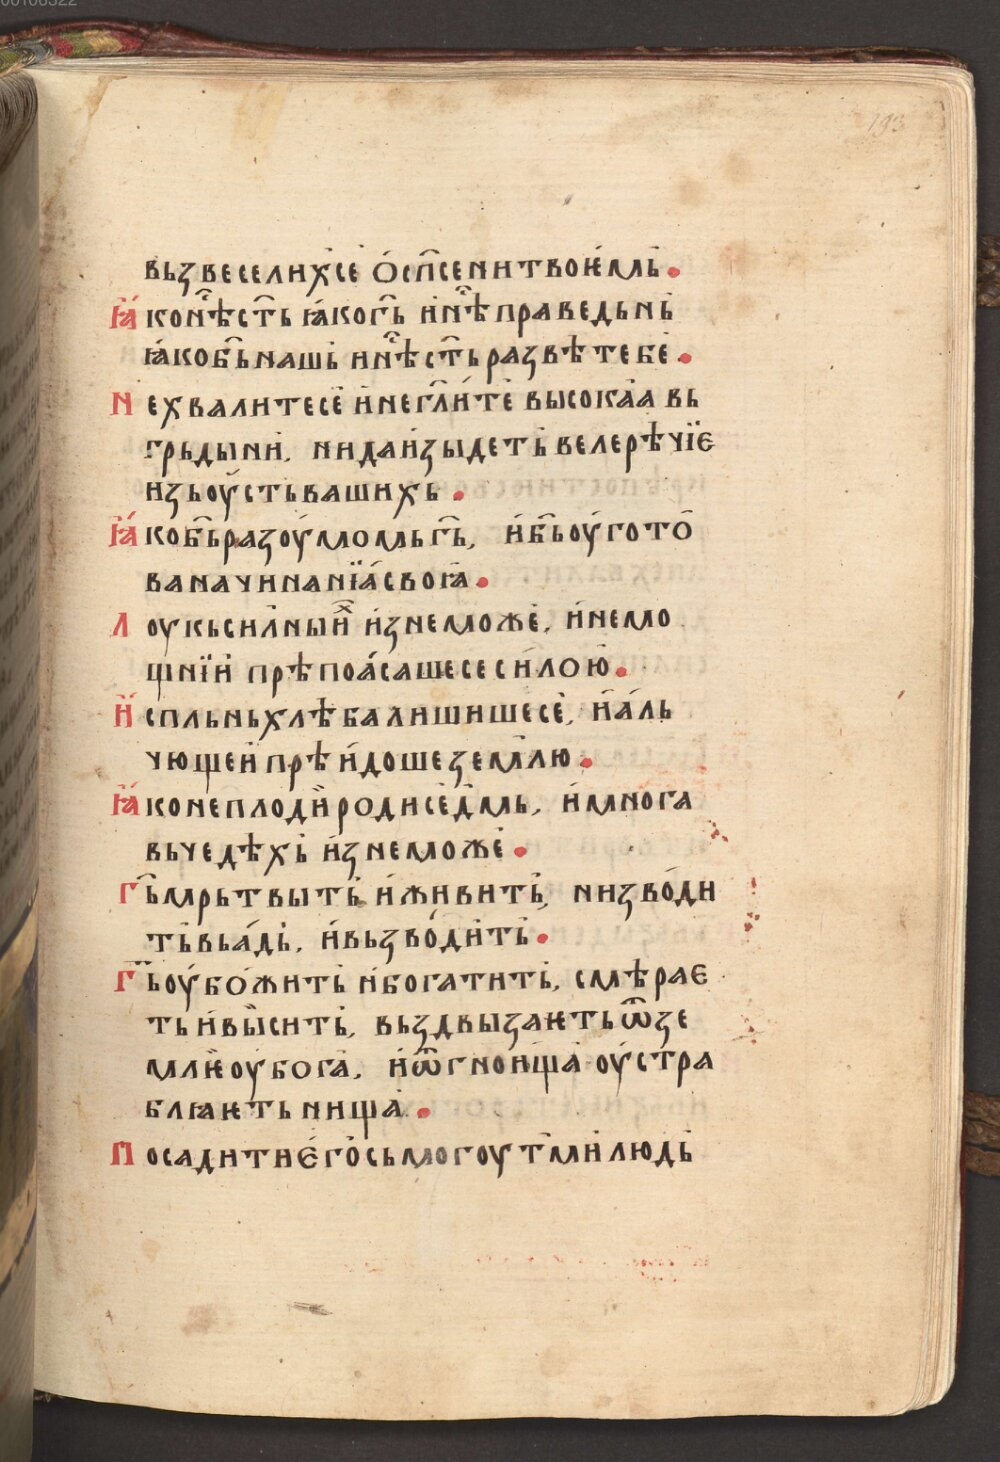 00108322
193
вьзвеселихсе ѡ́ сп҃сени твоѥмь.
Ꙗко нѣ́сть ꙗко г҃ь и нѣ́ праведьнь
ꙗко б҃ь нашь и нѣ́ст҃ь развѣ тебе.
Не хвалите се и не гл҃ите высокаа вь
грьдыни, ни да изыдеть велерѣчїе
изь оусть вашихь.
Ꙗко б҃ь разоумомь г҃ь, и б҃ь оугото
ва начинанїа своꙗ.
Лоукь силныих изнеможе, и немо
щнїи прѣпоасаше се силою.
Испльнь хлѣба лишише се, и аль
чющеи прѣидоше землю.
Ꙗко неплоди роди седмь, и многа
вь чедѣхь изнеможе.
Г҃ь мрьтвыть и живить, низводи
ть вь адь, и вьзводить.
Г҃ь оубожить и богатить, смѣрає
ть и высить, вьздвызаѥть ѿ зе
млѥ оубога, и ѿ гноища оустра
блꙗѥть нища.
Посадити єго сь могоутми людь